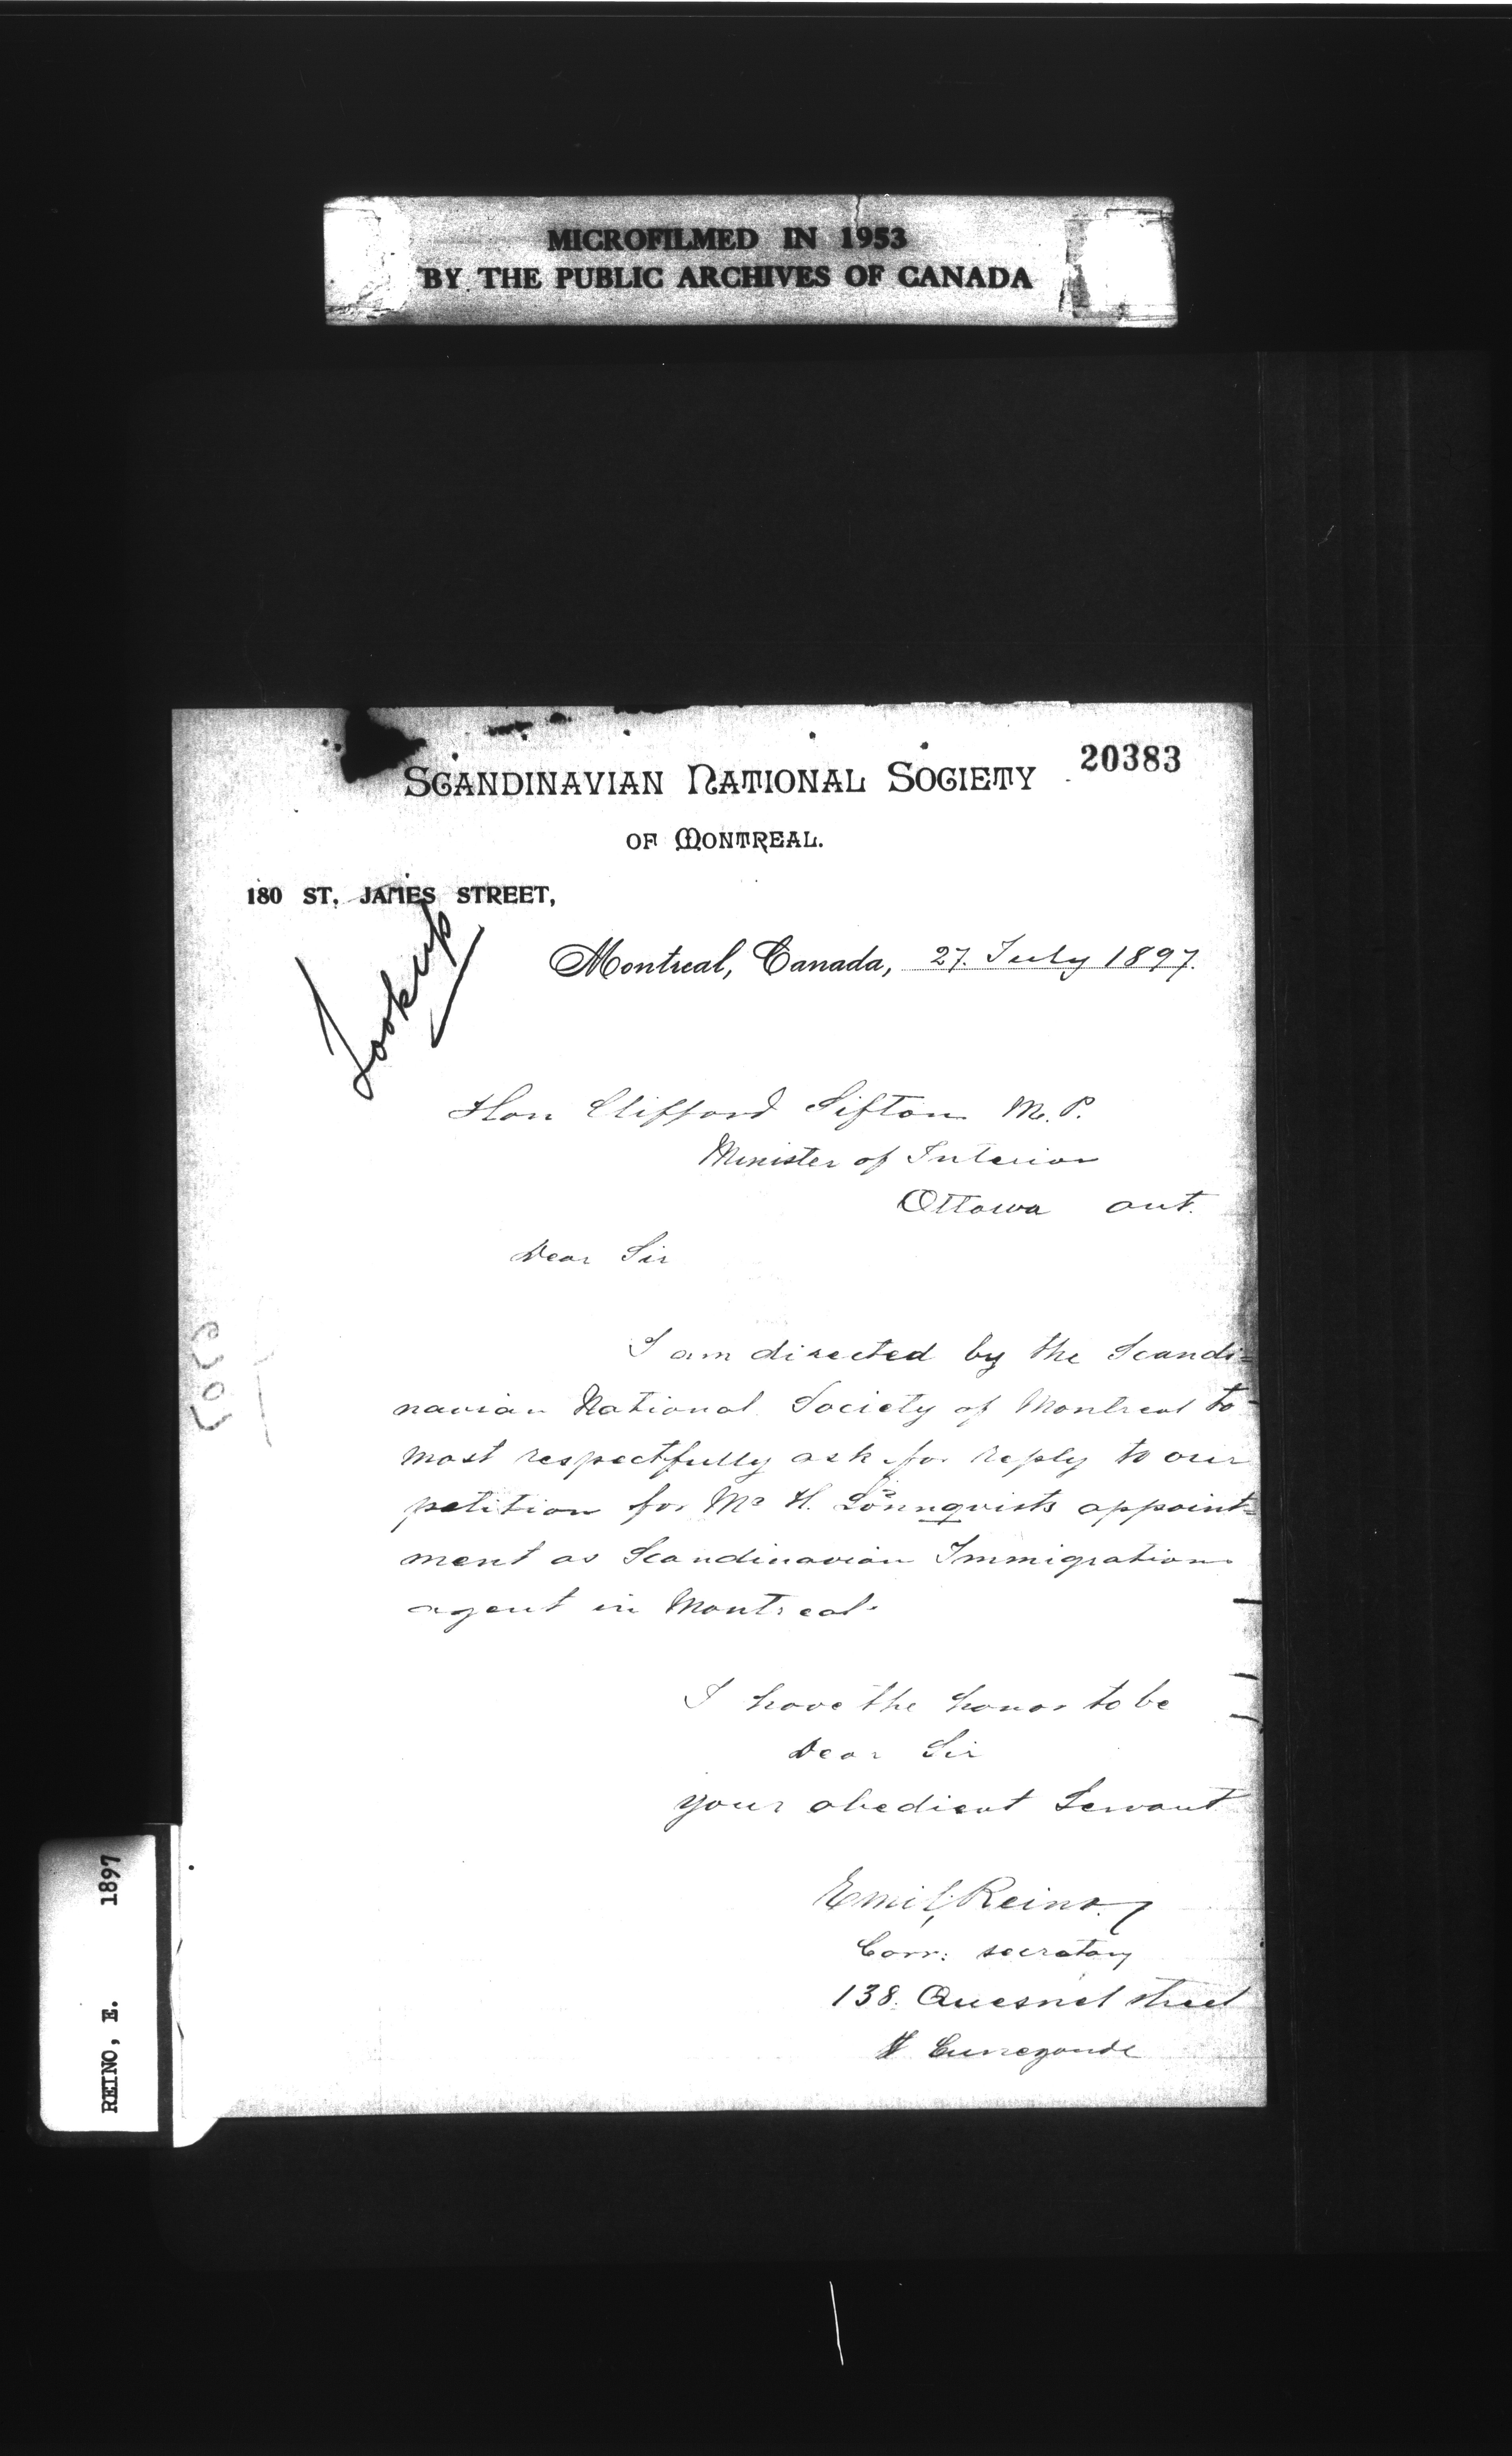 MICROFILMED IN 1953
BY THE PUBLIC ARCHIVES OF CANADA
20383
SCANDINAVIAN NATIONAL SOCIETY
OF MONTREAL.
180 ST. JAMES STREET,
Look up
Montreal, Canada, 27. July 1897.
Hon Clifford Sifton M.P.
Minister of Interior
Ottawa Ont.
Dear Sir
I am directed by the Scandi=
navian National Society of Montreal to
most respectfully ask for reply to our
petition for Mr H. Lönnqvists appoint=
ment as Scandinavian Immigration
agent in Montreal.
I have the honor to be
Dear Sir
your obedient Servant
Emil Reino.
Corr: secretary
138. Quesnel street
St Cunegonde
REINO, E. 1897